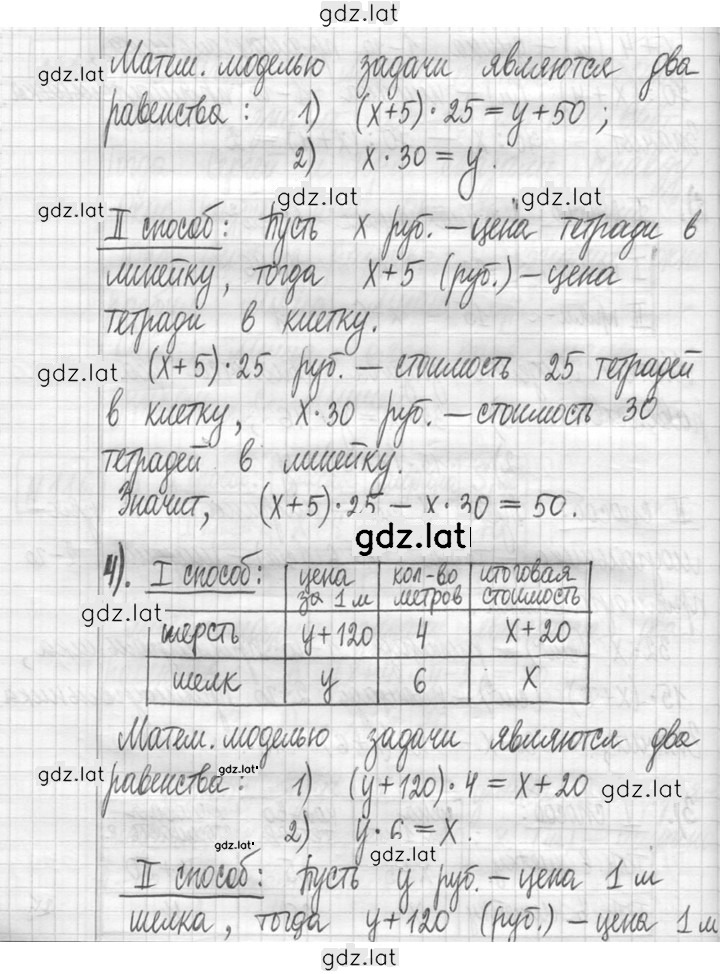 gdz.lat
Матем. моделью задачи являются два
gdz.lat
равенства: 1) (x+5)·25=y+50;
2) x·30=y.
gdz.lat gdz.lat
II способ: Пусть x руб. – цена тетради в
линейку, тогда x+5 (руб.) – цена
тетради в клетку.
gdz.lat (x+5)·25 руб. – стоимость 25 тетрадей
в клетку, x·30 руб. – стоимость 30
тетрадей в линейку.
Значит, (x+5)·25 – x·30 = 50.
gdz.lat
4). I способ: цена за 1 м кол-во метров итоговая стоимость
gdz.lat
шерсть y+120 4 x+20
шелк y 6 x
Матем. моделью задачи являются два
gdz.lat gdz.lat
равенства: 1) (y+120)·4=x+20 gdz.lat
2) y·6=x.
gdz.lat gdz.lat
II способ: Пусть y руб. – цена 1 м
шелка, тогда y+120 (руб.) – цена 1 м
gdz.lat